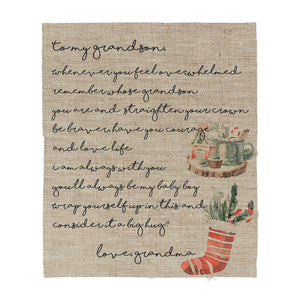 to my grandson,
whenever you feel overwhelmed
remember whose grandson
you are and straighten your crown
be braver, have you courage
and love life
i am always with you
you'll always be my baby boy
wrap yourself up in this and
consider it a big hug
love, grandma